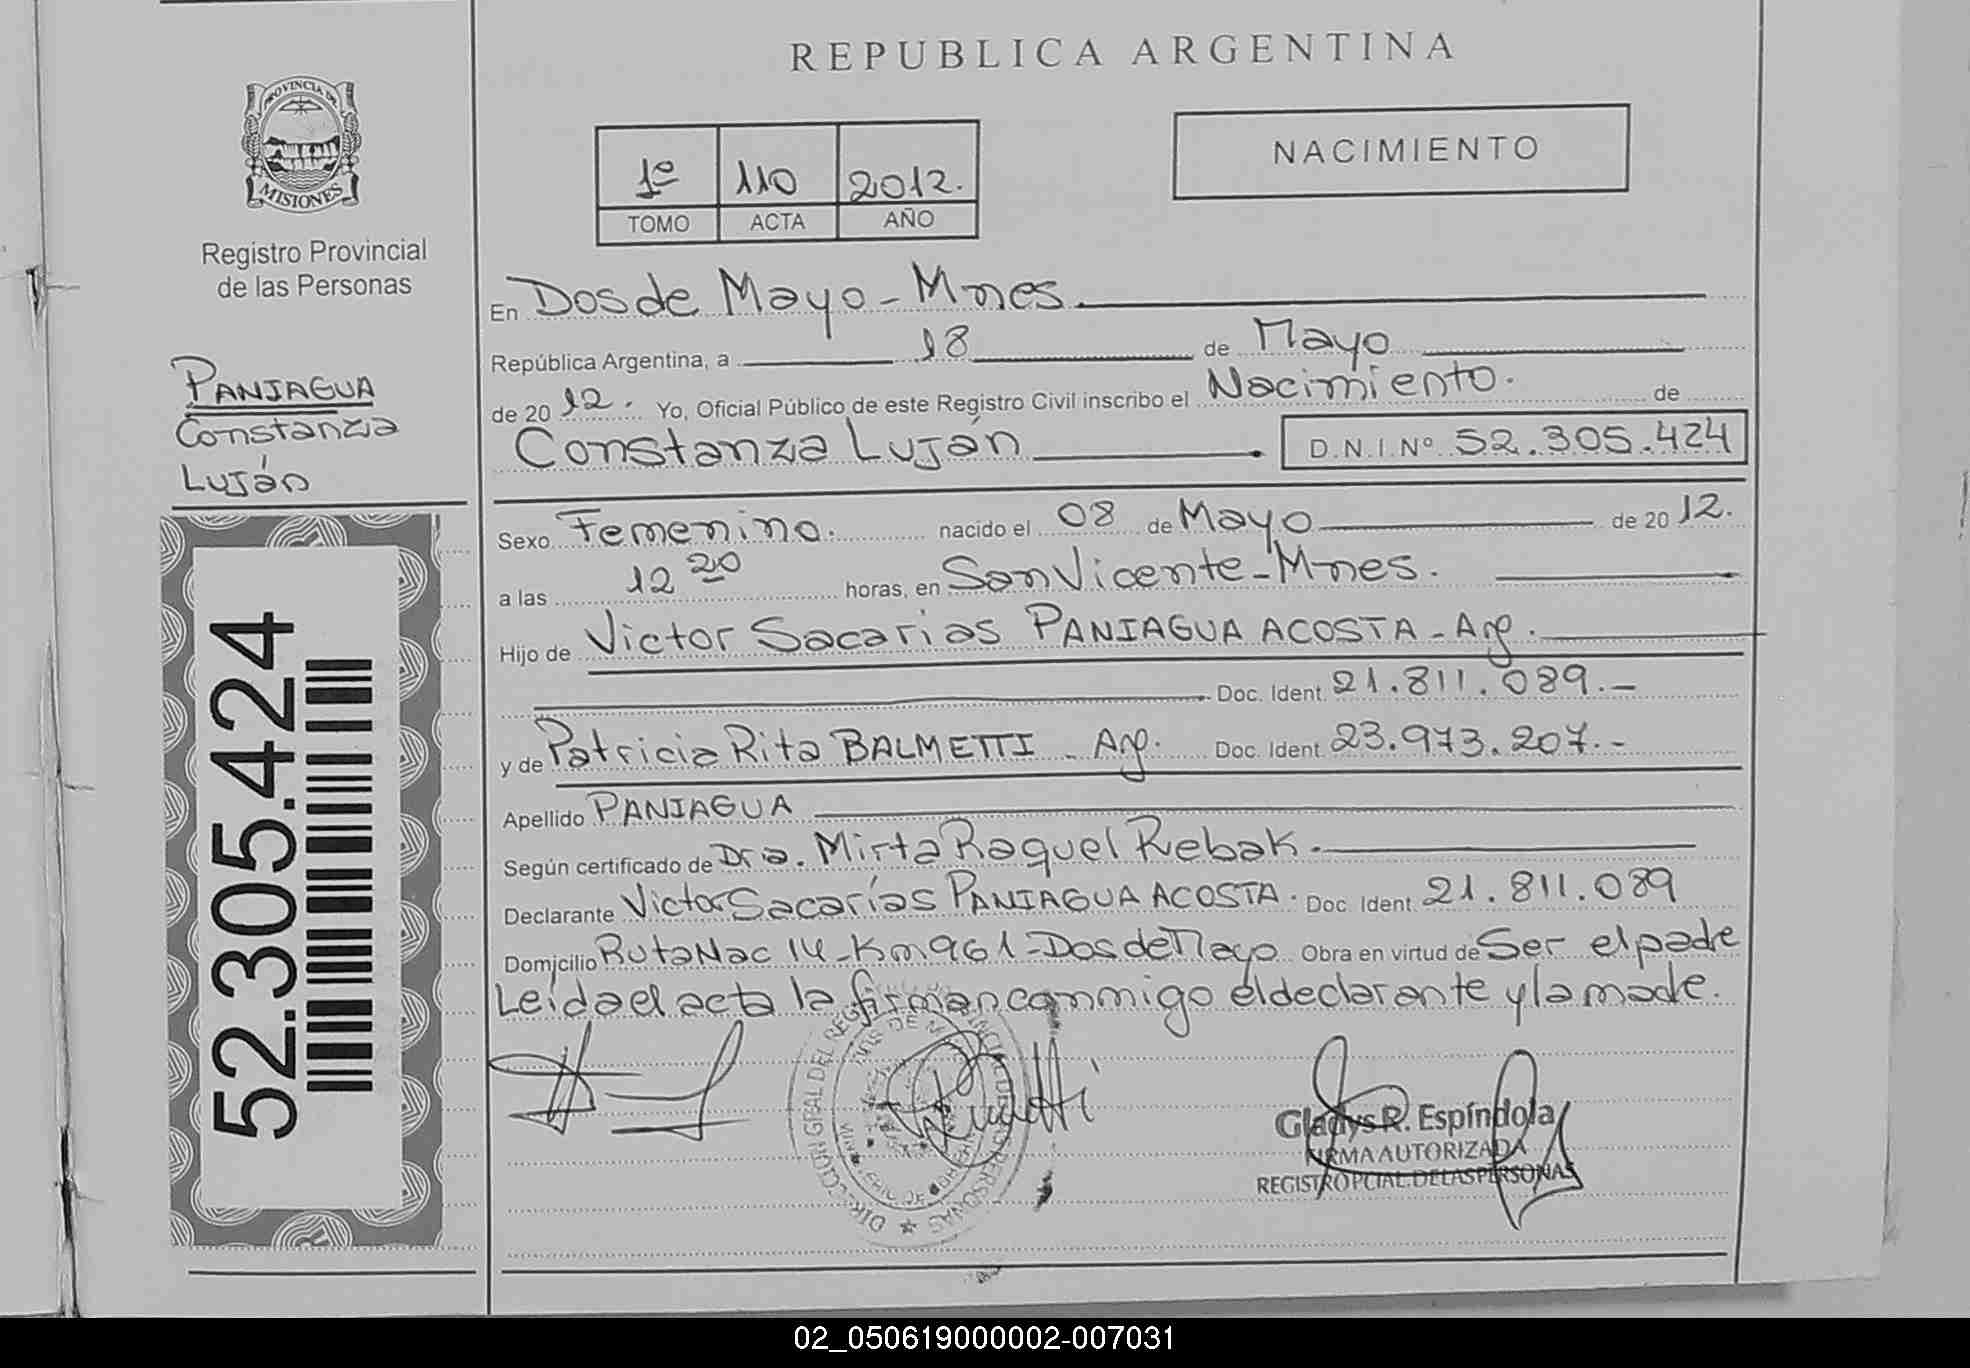 REPUBLICA ARGENTINA
PROVINCIA DE
MISIONES
Registro Provincial
de las Personas
1º 110 2012.
TOMO ACTA AÑO
NACIMIENTO
PANIAGUA
Constanzia
Luján
52.305.424
En Dos de Mayo - Mnes.
República Argentina, a 18 de Mayo
de 20 12. Yo, Oficial Público de este Registro Civil inscribo el Nacimiento. de
Constanzia Luján D.N.I.Nº 52.305.424
Sexo Femenino. nacido el 08 de Mayo de 20 12.
a las 12 20 horas, en San Vicente - Mnes.
Hijo de Victor Sacarias PANIAGUA ACOSTA - Arg.
Doc. Ident. 21.811.089.-
y de Patricia Rita BALMETTI - Arg. Doc. Ident. 23.973.207.-
Apellido PANIAGUA
Según certificado de Dra. Mirta Raquel Rebak.
Declarante Victor Sacarías PANIAGUA ACOSTA. Doc. Ident. 21.811.089
Domicilio Ruta Nac 14 - Km 961 - Dos de Mayo Obra en virtud de Ser el padre
Leida el acta la firman conmigo el declarante y la madre.
DIRECCION GRAL DEL REGISTRO PROVINCIAL DE LAS PERSONAS
Gladys R. Espíndola
FIRMA AUTORIZADA
REGISTRO PCIAL. DE LAS PERSONAS
02_050619000002-007031